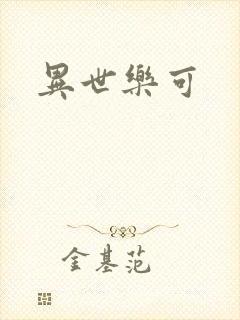 異世樂可
金基范